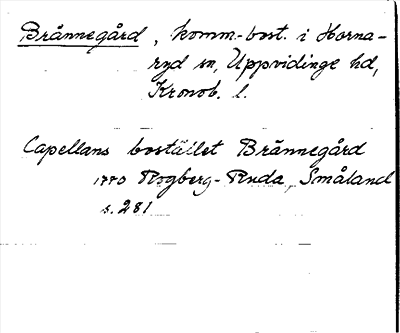 Brännegård, komm.-bost. i Horna-
ryd sn, Uppvidinge hd,
Kronob. l.
Capellans bostället Brännegård
1770 Rogberg-Ruda, Småland
s. 281